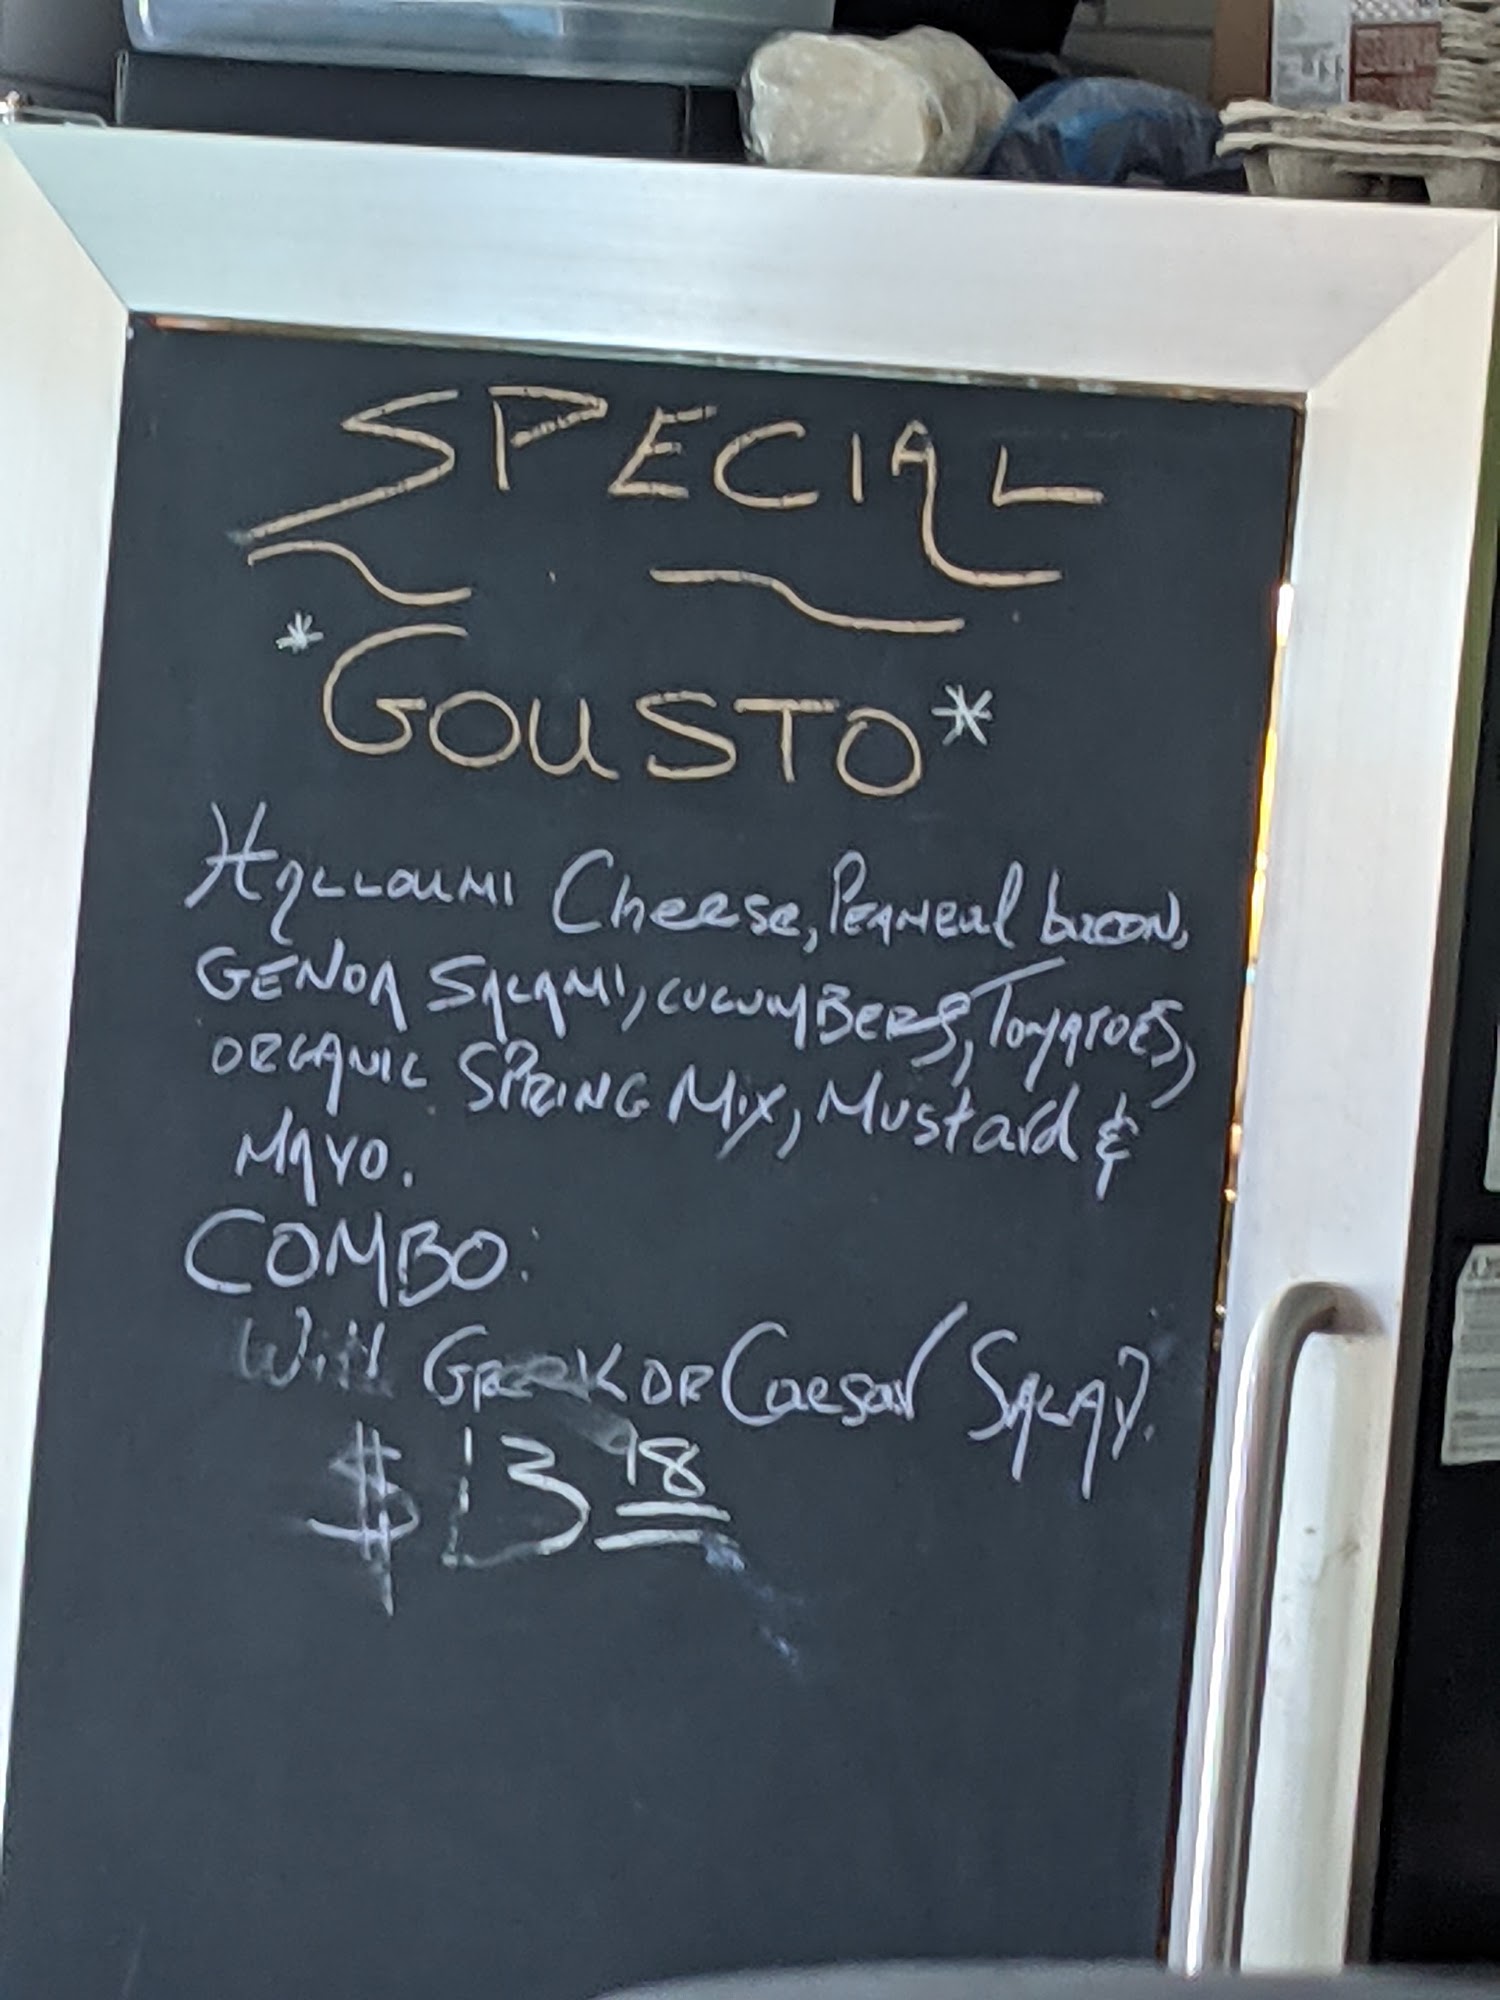 SPECIAL
*GOUSTO*
HALLOUMI Cheese, PEAMEAL bacon,
GENOA SALAMI, CUCUMBERS, TOMATOES,
ORGANIC SPRING MIX, Mustard &
MAYO.
COMBO:
With GREEK OR Caesar SALAD.
$13.98